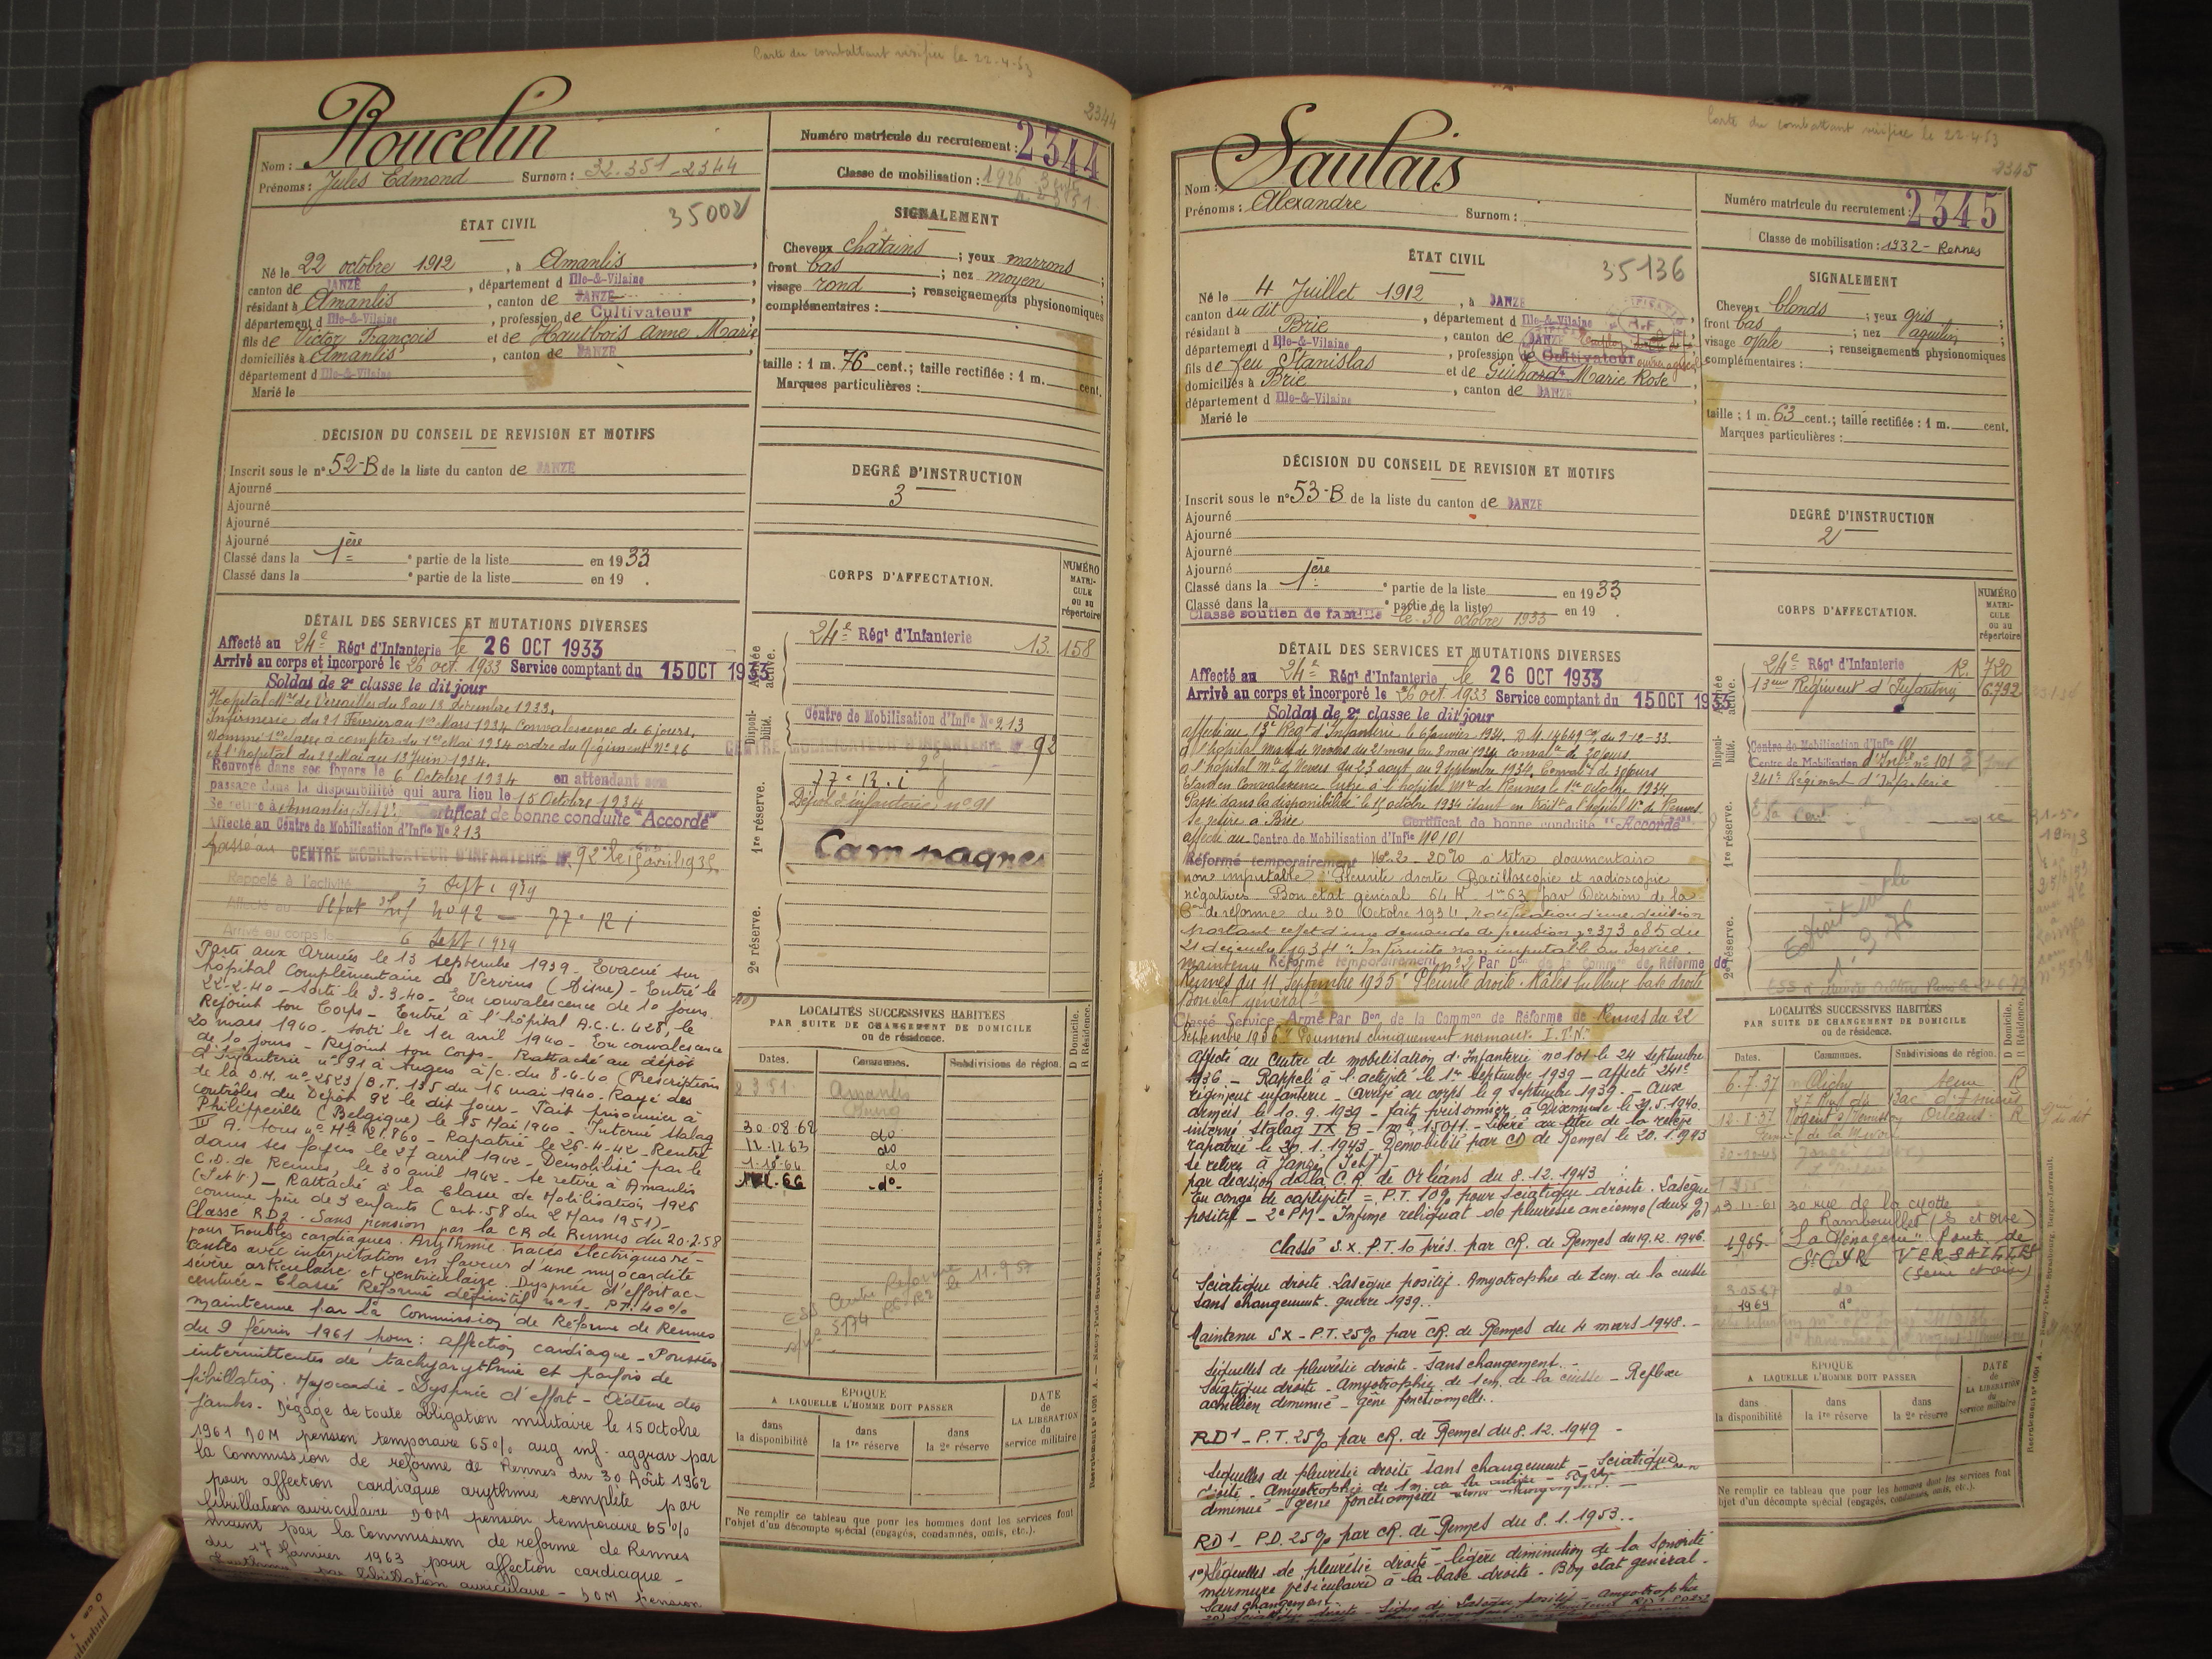 Carte du combattant vérifiée le 22-4-53
2344
Nom : Roucelin
Prénoms : Jules Edmond Surnom : 32.351_2344
Numéro matricule du recrutement : 2344
Classe de mobilisation : 1926
35002
ÉTAT CIVIL
Né le 22 octobre 1912, à Amanlis,
canton de JANZÉ, département d Ille-&-Vilaine
résidant à Amanlis, canton de JANZÉ
département d Ille-&-Vilaine, profession de Cultivateur
fils de Victor François et de Hautbois Anne Marie
domiciliés à Amanlis, canton de JANZÉ
département d Ille-&-Vilaine
Marié le
SIGNALEMENT
Cheveux chatains ; yeux marrons ;
front bas ; nez moyen ;
visage rond ; renseignements physionomiques
complémentaires :
taille : 1 m. 76 cent.; taille rectifiée : 1 m. cent.
Marques particulières :
DÉCISION DU CONSEIL DE REVISION ET MOTIFS
Inscrit sous le n° 52-B de la liste du canton de JANZÉ
Ajourné
Ajourné
Ajourné
Ajourné
Classé dans la 1ère ° partie de la liste en 1933
Classé dans la ° partie de la liste en 19 .
DEGRÉ D'INSTRUCTION
3
CORPS D'AFFECTATION.
NUMÉRO MATRICULE ou au répertoire
Armée active.
24e Régt d'Infanterie 13. 158
Disponibilité.
Centre de Mobilisation d'Infie N° 213
CENTRE MOBILISATEUR D'INFANTERIE N° 92
1re réserve.
77e R.i
Dépôt d'infanterie n° 91
Campagnes
2e réserve.
DÉTAIL DES SERVICES ET MUTATIONS DIVERSES
Affecté au 24e Régt d'Infanterie le 26 OCT 1933
Arrivé au corps et incorporé le 26 oct. 1933 Service comptant du 15 OCT 1933
Soldat de 2e classe le dit jour
Hopital Mre de Versailles du 8 au 18 décembre 1933.
Infirmerie du 21 Février au 1er Mars 1934 Convalescence de 6 jours.
Nommé 1ère classe à compter du 1er Mai 1934 ordre du Régiment N° 26
à l'hopital du 22 Mai au 13 Juin 1934.
Renvoyé dans ses foyers le 6 Octobre 1934 en attendant son
passage dans la disponibilité qui aura lieu le 15 Octobre 1934
Se retire à Amanlis, I et V. Certificat de bonne conduite "Accordé"
Affecté au Centre de Mobilisation d'Infie N° 213
passe au CENTRE MOBILISATEUR D'INFANTERIE N° 92 le 15 avril 1935.
Rappelé à l'activité 3 sept 1939
Affecté au dépot d'Inf n° 92 — 77e R i
Arrivé au corps le 6 sept 1939
Parti aux Armées le 13 septembre 1939 - Evacué sur
hôpital Complémentaire de Vervins (Aisne) - Entré le
22-2-40 - sorti le 3-3-40 - En convalescence de 10 jours.
Rejoint son Corps - Entré à l'hôpital A.C.L. 428, le
20 mars 1940 - sorti le 1er avril 1940 - En convalescence
de 10 jours - Rejoint son Corps - Rattaché au dépôt
d'Infanterie n° 91 à Angers à/c. du 8-6-40 (Prescriptions
de la D.M. n° 2523/B.T. 135 du 16 mai 1940 - Rayé des
contrôles du Dépôt 92 le dit jour - Fait prisonnier à
Philippeville (Belgique) le 15 May 1940 - Interné Stalag
IV A. sous n° Mle 21.860 - Rapatrié le 26-4-42 - Rentré
dans ses foyers le 27 avril 1942 - Démobilisé par le
C.D. de Rennes, le 30 avril 1942 - se retire à Amanlis
(I et V) - Rattaché à la Classe de Mobilisation 1926
comme père de 3 enfants (art. 58 du 2 Mars 1951) -
Classé RD2 - Sans pension par la CR de Rennes du 20.2.58
pour troubles cardiaques. Arythmie. Tracés électriques ré-
centes avec interprétation en faveur d'une myocardite
sévère articulaire et ventriculaire. Dyspnée d'effort ac-
centuée - Classé Réformé définitif n° 1 - PT. 40%
maintenue par la Commission de Réforme de Rennes
du 9 février 1961 pour : affection cardiaque - Poussées
intermittentes de tachyarythmie et parfois de
fibrillation. Myocardie - Dyspnée d'effort - Oedème des
jambes. Dégagé de toute obligation militaire le 15 Octobre
1961 DOM pension temporaire 65% aug inf. aggrav par
la Commission de réforme de Rennes du 30 Août 1962
pour affection cardiaque arythmie complète par
fibrillation auriculaire DOM pension temporaire 65%
maint par la Commission de reforme de Rennes
du 17 Janvier 1963 pour affection cardiaque -
par fibrillation auriculaire - DOM Pension
LOCALITÉS SUCCESSIVES HABITÉES
PAR SUITE DE CHANGEMENT DE DOMICILE
ou de résidence.
Dates. Communes. Subdivisions de région. D Domicile. R Résidence.
2 3 51 Amanlis
Bourg
30 08 62 do
12.12.63 do
1.10.64 do
66 -do-
ESS Centre Réforme le 11.9.57
ÉPOQUE
A LAQUELLE L'HOMME DOIT PASSER
dans la disponibilité dans la 1re réserve dans la 2e réserve
DATE DE LA LIBÉRATION du service militaire
Ne remplir ce tableau que pour les hommes dont les services font
l'objet d'un décompte spécial (engagés, condamnés, omis, etc.).
Carte du combattant vérifiée le 22-4-53
2345
Nom : Saulais
Prénoms : Alexandre Surnom :
Numéro matricule du recrutement : 2345
Classe de mobilisation : 1932 - Rennes
35136
ÉTAT CIVIL
Né le 4 Juillet 1912, à JANZÉ
canton du dit, département d Ille-&-Vilaine
résidant à Brie, canton de JANZÉ
département d Ille-&-Vilaine, profession de Cultivateur ouvrier agricole
fils de feu Stanislas et de Guihard Marie Rose
domiciliés à Brie, canton de JANZÉ
département d Ille-&-Vilaine
Marié le
SIGNALEMENT
Cheveux blonds ; yeux gris ;
front bas ; nez aquilin ;
visage ovale ; renseignements physionomiques
complémentaires :
taille : 1 m. 63 cent.; taille rectifiée : 1 m. cent.
Marques particulières :
DÉCISION DU CONSEIL DE REVISION ET MOTIFS
Inscrit sous le n° 53-B de la liste du canton de JANZÉ
Ajourné
Ajourné
Ajourné
Ajourné
Classé dans la 1ère ° partie de la liste en 1933
Classé dans la ° partie de la liste en 19 .
Classé soutien de famille le 30 octobre 1933
DEGRÉ D'INSTRUCTION
2
CORPS D'AFFECTATION.
NUMÉRO MATRICULE ou au répertoire
Armée active.
24e Régt d'Infanterie R. 720
13ème Régiment d'Infanterie 6792
Disponibilité.
Centre de Mobilisation d'Infie 101
Centre de Mobilisation d'Infie n° 101
241e Régiment d'Infanterie
1re réserve.
2e réserve.
DÉTAIL DES SERVICES ET MUTATIONS DIVERSES
Affecté au 24e Régt d'Infanterie le 26 OCT 1933
Arrivé au corps et incorporé le 26 oct. 1933 Service comptant du 15 OCT 1933
Soldat de 2e classe le dit jour
affecté au 13e Régt d'Infanterie le 6 Janvier 1934. D.M. 14649 du 9-12-33.
à l'hopital Mre de Nevers du 21 mars au 8 mai 1934 convalce de 20 jours
à l'hopital Mre de Nevers du 23 aout au 9 septembre 1934. Convalce de 30 jours
Etant en Convalescence entre à l'hopital Mre de Rennes le 1er octobre 1934.
Passé dans la disponibilité le 15 octobre 1934 étant en traitt à l'hopital Mre de Rennes
se retire à Brie Certificat de bonne conduite "Accordé"
affecté au Centre de Mobilisation d'Infie N° 101
Réformé temporairement N° 2 20% à titre documentaire
non imputable "Pleurite droite Bacilloscopie et radioscopie
négatives. Bon état général 64 K. 1m63 par Décision de la
Con de réforme du 30 Octobre 1934. notification d'une décision
portant rejet d'une demande de pension n° 373.085 du
21 décembre 1934 : Infirmité non imputable au Service.
Maintenu Réformé temporairement n° 2 Par Don de la Commn de Réforme de
Rennes du 11 Septembre 1935 "Pleurite droite. Râles bulleux base droite
Bon état général"
Classé Service Armé Par Don de la Commn de Réforme de Rennes du 22
Septembre 1936 "Poumons cliniquement normaux. I.P.N."
affecté au Centre de mobilisation d'Infanterie n° 101 le 24 septembre
1936. - Rappelé à l'activité le 1er septembre 1939 - affecté 241e
régiment infanterie - Arrivé au corps le 9 septembre 1939 - aux
armées le 10.9.1939 - fait prisonnier à Dixmude le 29.5.1940.
interné stalag IX B - n° 15011 - libéré au titre de la relève
rapatrié le 20.1.1943 - Démobilisé par CD de Rennes le 20.1.1943
se retire à Janzé (I et V)
par décision de la C.R. de Orléans du 8.12.1943
En congé de captivité = P.T. 10% pour sciatique droite. Lasègue
positif - 2e PM - Infime reliquat de pleurésie ancienne (deux %)
Classé S.X. P.T. 10 prés. par CR. de Rennes du 19.12.1946
Sciatique droite. Lasègue positif. Amyotrophie de 1 cm. de la cuisse
sans changement. guerre 1939..
Maintenu SX - P.T. 25% par CR. de Rennes du 4 mars 1948. -
Séquelles de pleurésie droite - sans changement. -
Sciatique droite - Amyotrophie de 1 cm. de la cuisse - Reflexe
achilléen diminué - gêne fonctionnelle..
RD1 - P.T. 25% par CR. de Rennes du 8.12.1949 -
Séquelles de pleurésie droite sans changement - Sciatique
droite - Amyotrophie de 1 cm. de la cuisse
diminué - gêne fonctionnelle
RD1 - P.D. 25% par CR. de Rennes du 8.1.1953..
1°) Séquelles de pleurésie droite - légère diminution de la sonorité
murmure vésiculaire à la base droite - Bon état général -
Sans changement -
2°) Sciatique droite - Signe de Lasègue positif - Amyotrophie
LOCALITÉS SUCCESSIVES HABITÉES
PAR SUITE DE CHANGEMENT DE DOMICILE
ou de résidence.
Dates. Communes. Subdivisions de région. D Domicile. R Résidence.
6-7-37 Clichy Seine R
27 Rue du Bac d'Asnières
12-8-37 Nogent s/ Vernisson Orléans R
30-12-48 Janzé
13-11-61 30 rue de la motte
Rambouillet (S et Oise)
1965 "La Ménagerie" Route de
St CYR VERSAILLES
(Seine et Oise)
3-05-67 do
1969 d°
ÉPOQUE
A LAQUELLE L'HOMME DOIT PASSER
dans la disponibilité dans la 1re réserve dans la 2e réserve
DATE DE LA LIBÉRATION du service militaire
Ne remplir ce tableau que pour les hommes dont les services font
l'objet d'un décompte spécial (engagés, condamnés, omis, etc.).